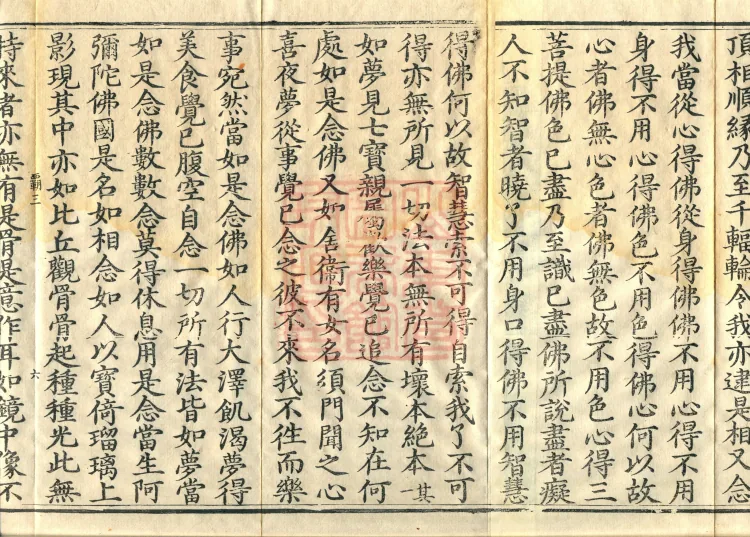 頂相順緣乃至千輻輪令我亦逮是相又念
我當從心得佛從身得佛佛不用心得不用
身得不用心得佛色不用色得佛心何以故
心者佛無心色者佛無色故不用色心得三
菩提佛色已盡乃至識已盡佛所說盡者癡
人不知智者曉了不用身口得佛不用智慧
得佛何以故智慧索不可得自索我了不可
得亦無所見一切法本無所有壞本絕本其一
如夢見七寶親屬歡樂覺已追念不知在何
處如是念佛又如舍衞有女名須門聞之心
喜夜夢從事覺已念之彼不來我不徃而樂
事宛然當如是念佛如人行大澤飢渴夢得
美食覺已腹空自念一切所有法皆如夢當
如是念佛數數念莫得休息用是念當生阿
彌陀佛國是名如相念如人以寶倚瑠璃上
影現其中亦如比丘觀骨骨起種種光此無
霸三 六
持來者亦無有是骨是意作耳如鏡中像不